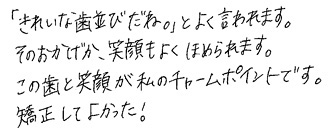 「きれいな歯並びだね。」とよく言われます。
そのおかげか、笑顔もよくほめられます。
この歯と笑顔が私のチャームポイントです。
矯正してよかった!